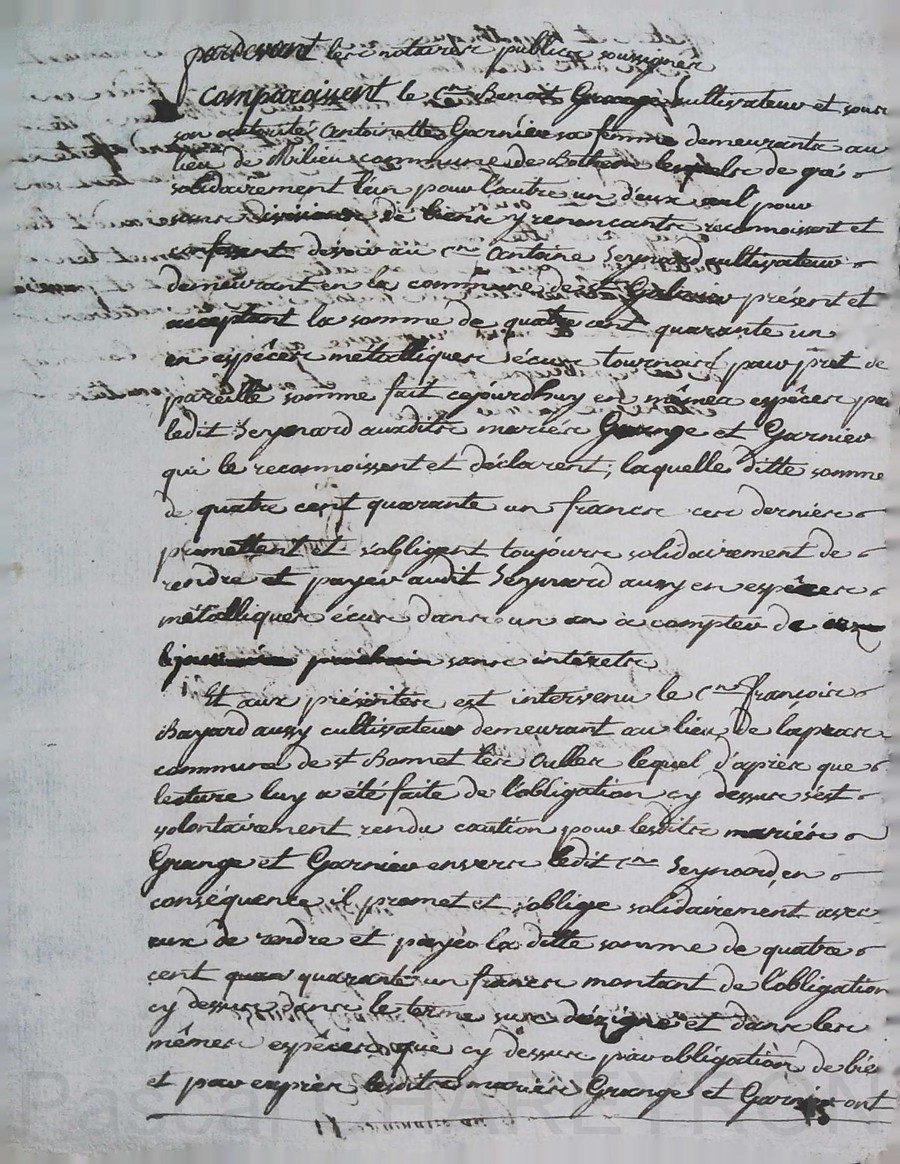 pardevant les notaires publics soussignés
Comparaissent le Cen Benoit Grange Cultivateur et sous
son autorité Antoinette Garnier sa femme demeurants au
lieu de Milieu commune de Botheon lesquels de gré
solidairement l'un pour l'autre un d'eux seul pour
sans division de biens y renonçants reconnoissent et
confessent devoir au Cen Antoine Seynard cultivateur
demeurant en la commune de St Galmier présent et
acceptant la somme de quatre cent quarante un
en espêces métalliques écus tournois pour prêt de
pareille somme fait cejourdhuy en mêmes espêces par
ledit Seynard auxdits mariés Grange et Garnier
qui le reconnoissent et déclarent; laquelle ditte somme
de quatre cent quarante un francs ces derniers
promettent et s'obligent toujours solidairement de
rendre et payer audit Seynard aussy en espêces
métalliques écus dans un an à compter de ce
jour prochain sans intérets
Et aux présentes est intervenu le Cen françois
Bayard aussy cultivateur demeurant au lieu de
commune de St Bonnet les Oulles lequel d'après que
lecture luy a été faite de l'obligation cy dessus s'est
volontairement rendu caution pour lesdits mariés
Grange et Garnier envers ledit Cen Seynard, en
conséquence il promet et s'oblige solidairement avec
eux de rendre et payer la ditte somme de quatre
cent quarante un francs montant de l'obligation
cy dessus dans le terme sus désigné et dans les
mêmes espêces que cy dessus par obligation de bien
et par exprès lesdits mariés Grange et Garnier ont
Pascal CHAREYRON